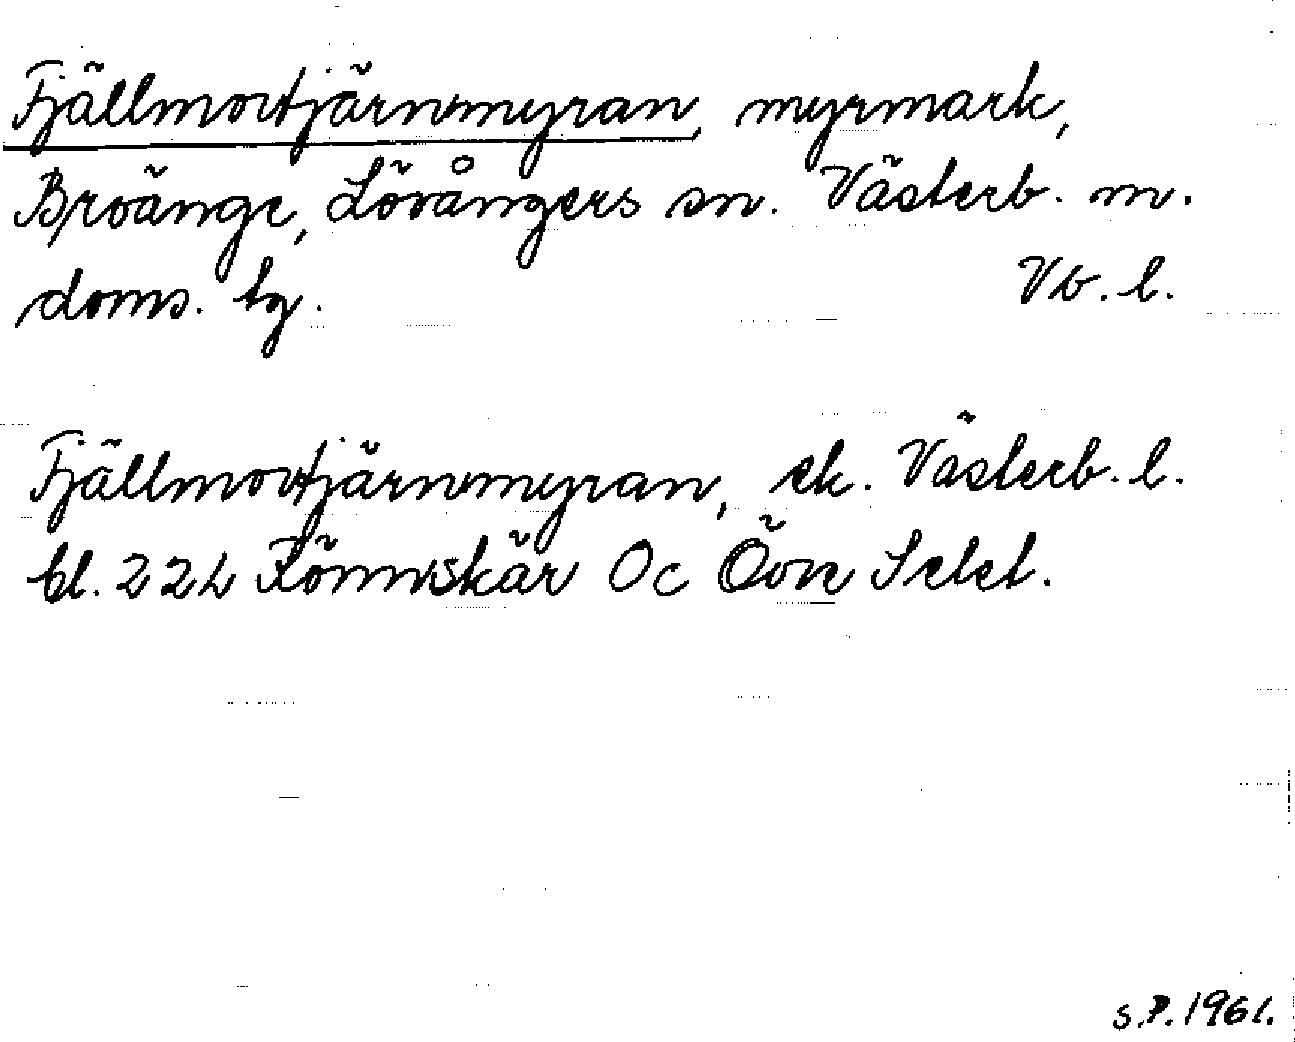 Fjällmortjärnmyran, myrmark,
Broänge, Lövångers sn. Västerb. m.
doms. tg. Vb. l.
Fjällmortjärnmyran, ek. Västerb. l.
bl. 22L Rönnskär Oc Övre Selet.
S.P. 1961.